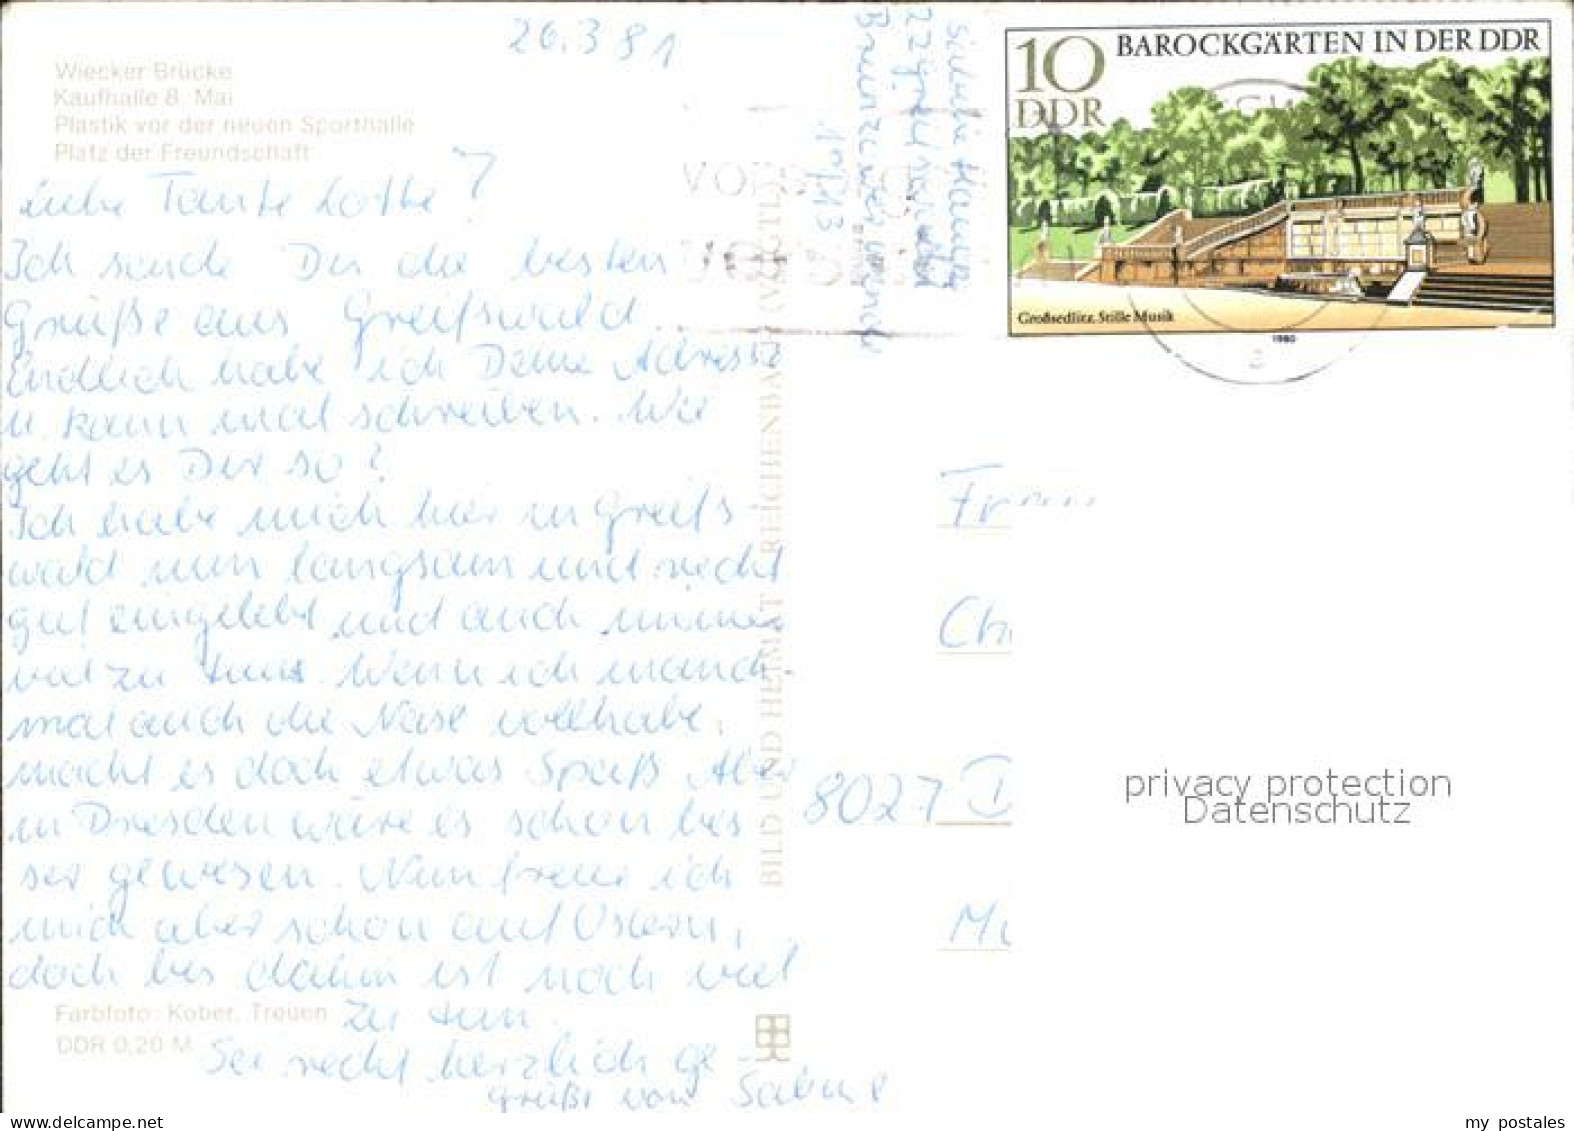 26.3 81
Wiecker Brücke
Kaufhalle 8. Mai
Plastik vor der neuen Sporthalle
Platz der Freundschaft
Liebe Tante Lotte!
Ich sende Dir die besten
Grüße aus Greifswald.
Endlich habe ich Deine Adresse
u. kann mal schreiben. Wie
geht es Dir so?
Ich habe mich hier in Greifs
wald nun langsam und recht
gut eingelebt und auch immer
viel zu tun. Wenn ich manch-
mal auch die Nase voll habe,
macht es doch etwas Spaß. Aber
in Dresden wäre es schon bes
ser gewesen. Nun freue ich
mich aber schon auf Ostern,
doch bis dahin ist noch viel
zu tun.
Sei recht herzlich ge
grüßt von Sabine
Farbfoto: Kober, Treuen
DDR 0,20 M
BILD UND HEIMAT REICHENBACH (VOGTL
22 Greifswald
10
DDR
BAROCKGÄRTEN IN DER DDR
Großsedlitz, Stille Musik
1980
Frau
Ch
8027 D
M
privacy protection
Datenschutz
my postales